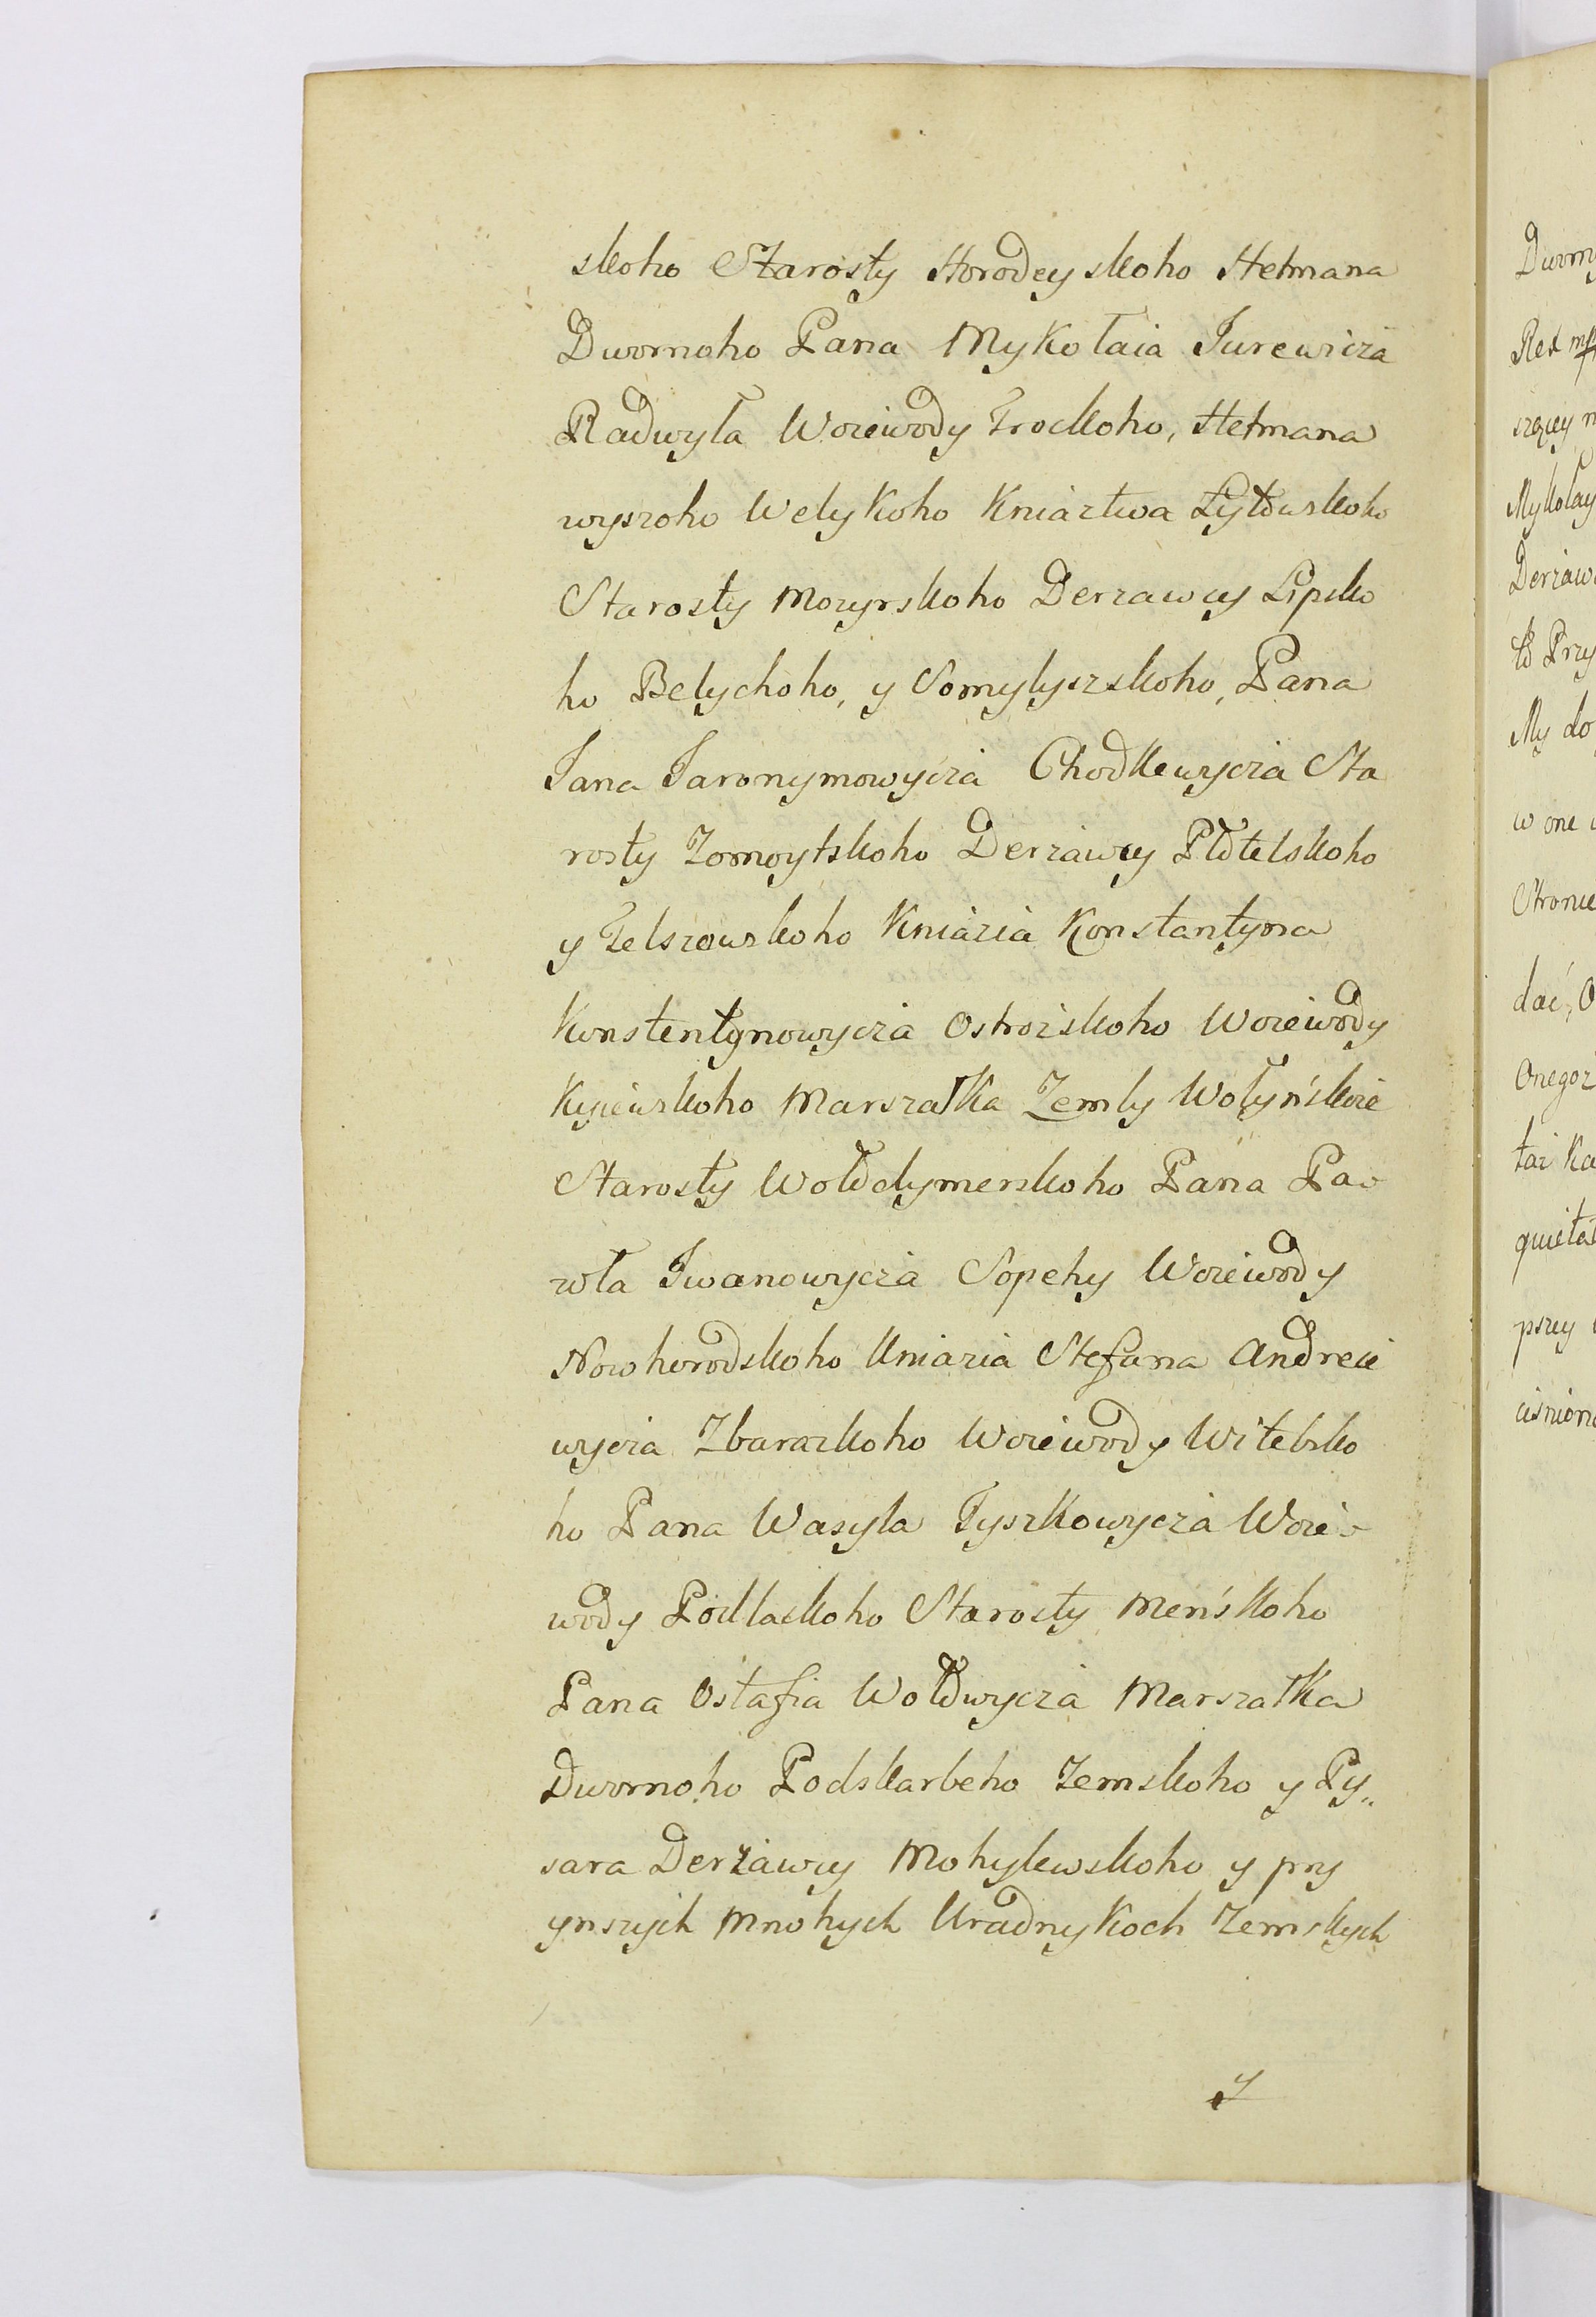 skoho Starosty Horodeyskoho Hetmana
Dwornoho Pana Mykołaia Jurewicza
Radwyła Woiewody Trockoho, Hetmana
wyszoho Welykoho Kniaztwa Lytowskoho
Starosty Mozyrskoho Derzawcy Lipsko
ho Belyckoho, y Somyłyszskoho, Pana
Jana Jaronymowycza Chodkewycza Sta
rosty Zomoytskoho Derzawcy Płotelskoho
y Telszowskoho Kniazia Konstantyna
Konstentynowycza Ostrozskoho Woiewody
Kyiewskoho Marszałka Zemly Wołyńskoie
Starosty Wołodymerskoho Pana Pa
wła Iwanowycza Sopehy Woiewody
Nowhorodskoho Kniazia Stefana Andreie
wycza Zbarazkoho Woiewody Witebsko
ho Pana Wasyla Tyszkowycza Woie
wody Podlaskoho Starosty Meńskoho
Pana Ostafia Wołowycza Marszałka
Dwornoho Podskarbeho Zemskoho y Py„
sara Derżawcy Mohylewskoho y pry
ynszych mnohych Uradnykoch Zemskych
y
Dworny
Mykołay
Derżaw
to Przy
My do
w one
Stronie
dać, O
Onegoż
taż Ka
quieta
pszey
ciśnion